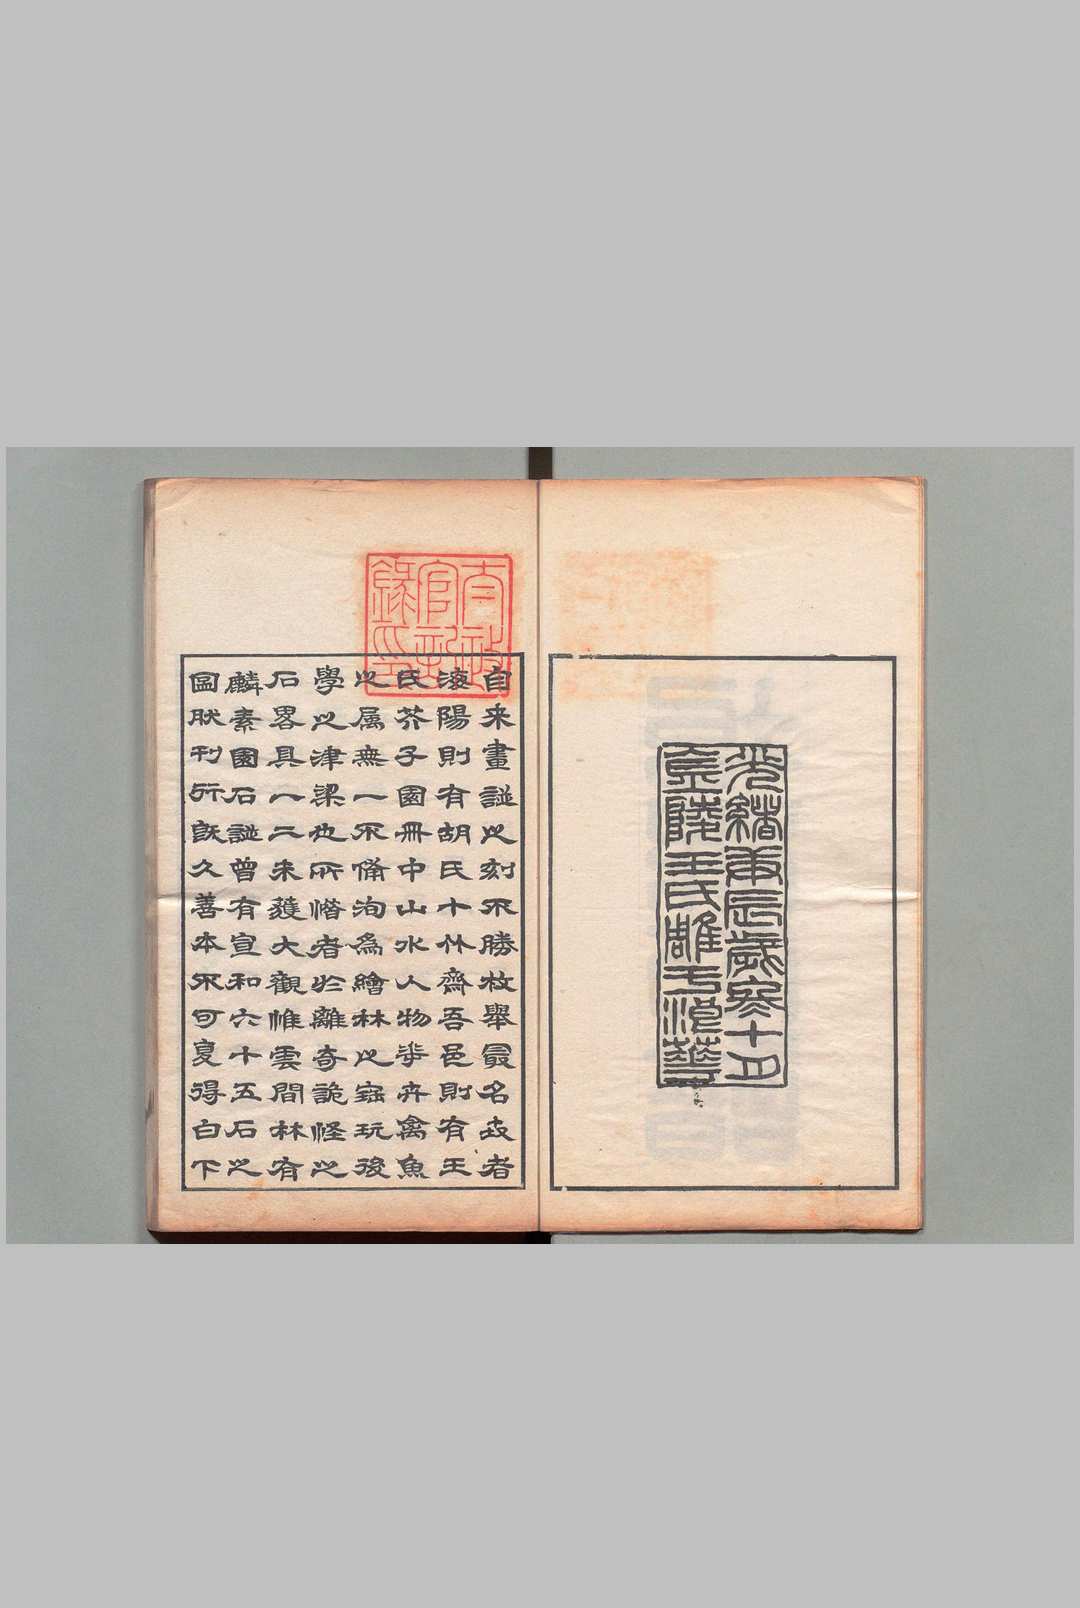 光緒庚辰歲寒十月
金陵王氏雕于
太政
官記
錄印
自来畫譜之刻不勝枚舉最名者
海陽則有胡氏十竹齋吾邑則有王
氏芥子園冊中山水人物華卉禽魚
之属無一不備洵爲繪林之寶玩後
學之津梁也所惜者於離奇詭怪之
石畧具一二未獲大觀惟雲間林有
麟素園石譜曾有宣和六十五石之
圖然刊行既久善本不可夏得白下